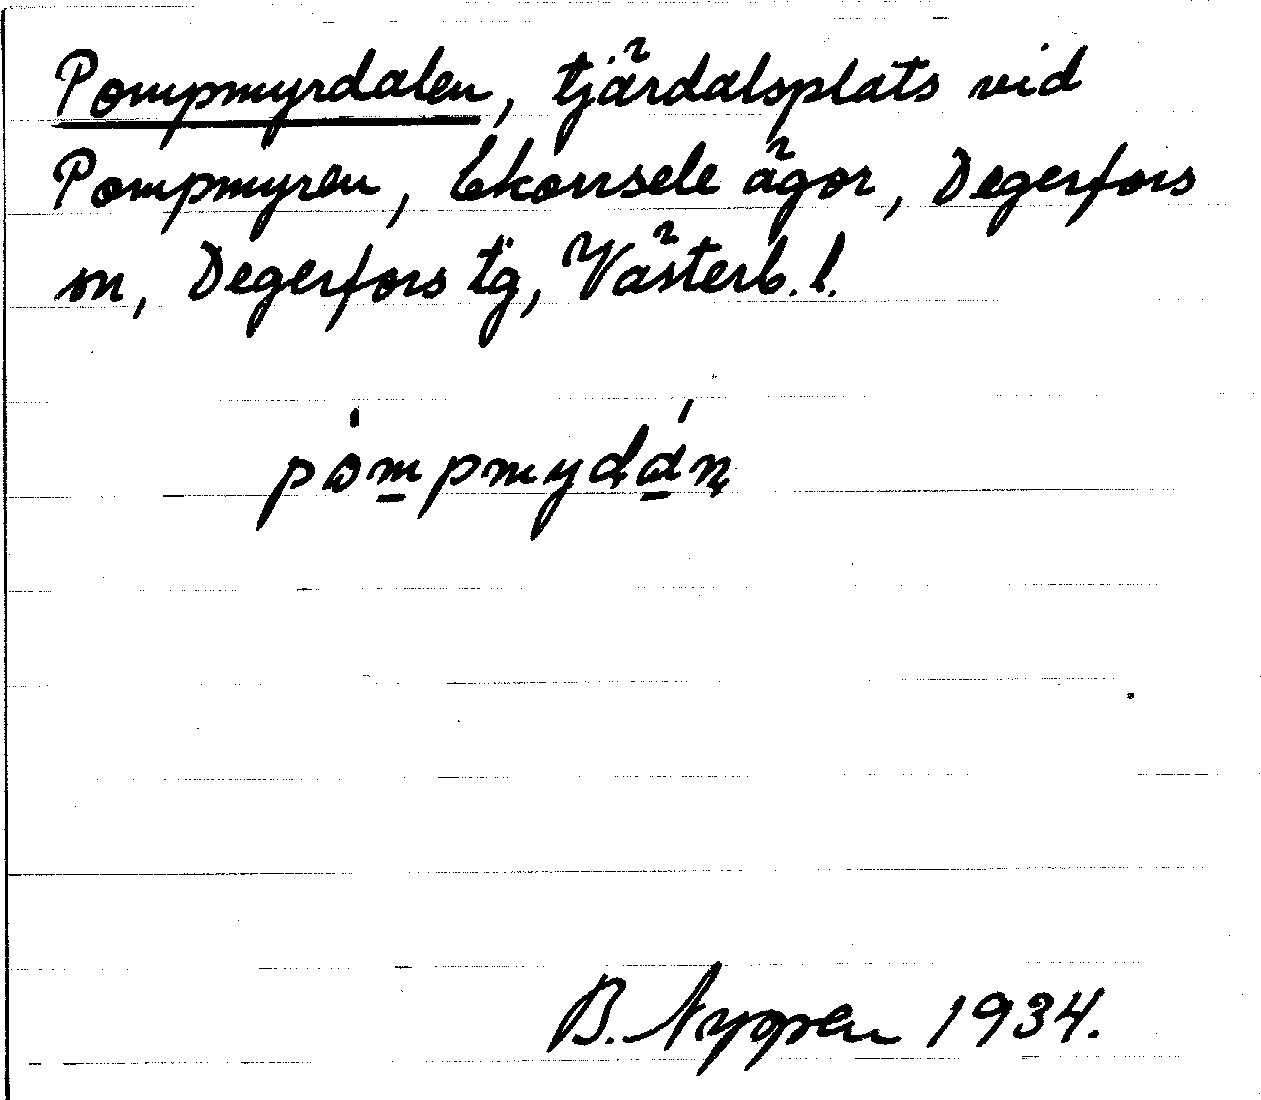 Pompmyrdalen, tjärdalsplats vid
Pompmyren, Ekorrsele ägor, Degerfors
sn, Degerfors tg, Västerb. l.
pòmpmydán
B. Nyppen 1934.